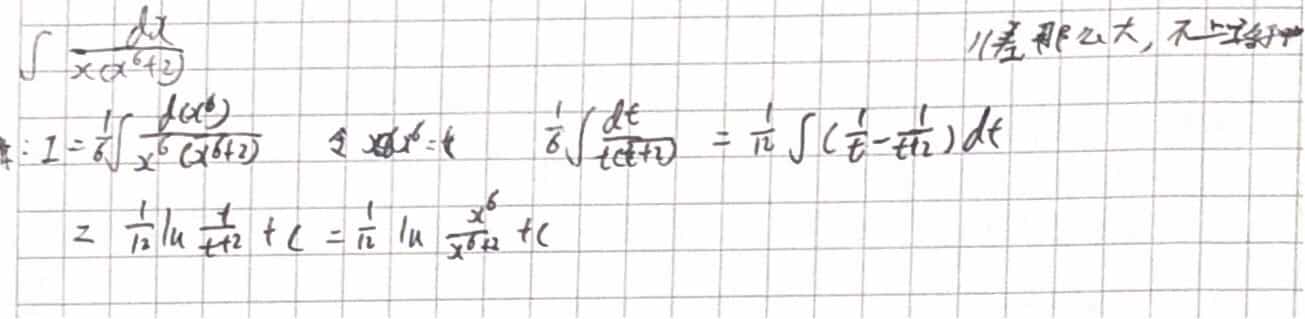 ∫ dx/(x(x⁶+2))
//差那么大,不一定等于
: I = 1/6 ∫ d(x⁶)/(x⁶(x⁶+2)) 令 x⁶=t 1/6 ∫ dt/(t(t+2)) = 1/12 ∫ (1/t - 1/(t+2)) dt
= 1/12 ln t/(t+2) + C = 1/12 ln x⁶/(x⁶+2) + C